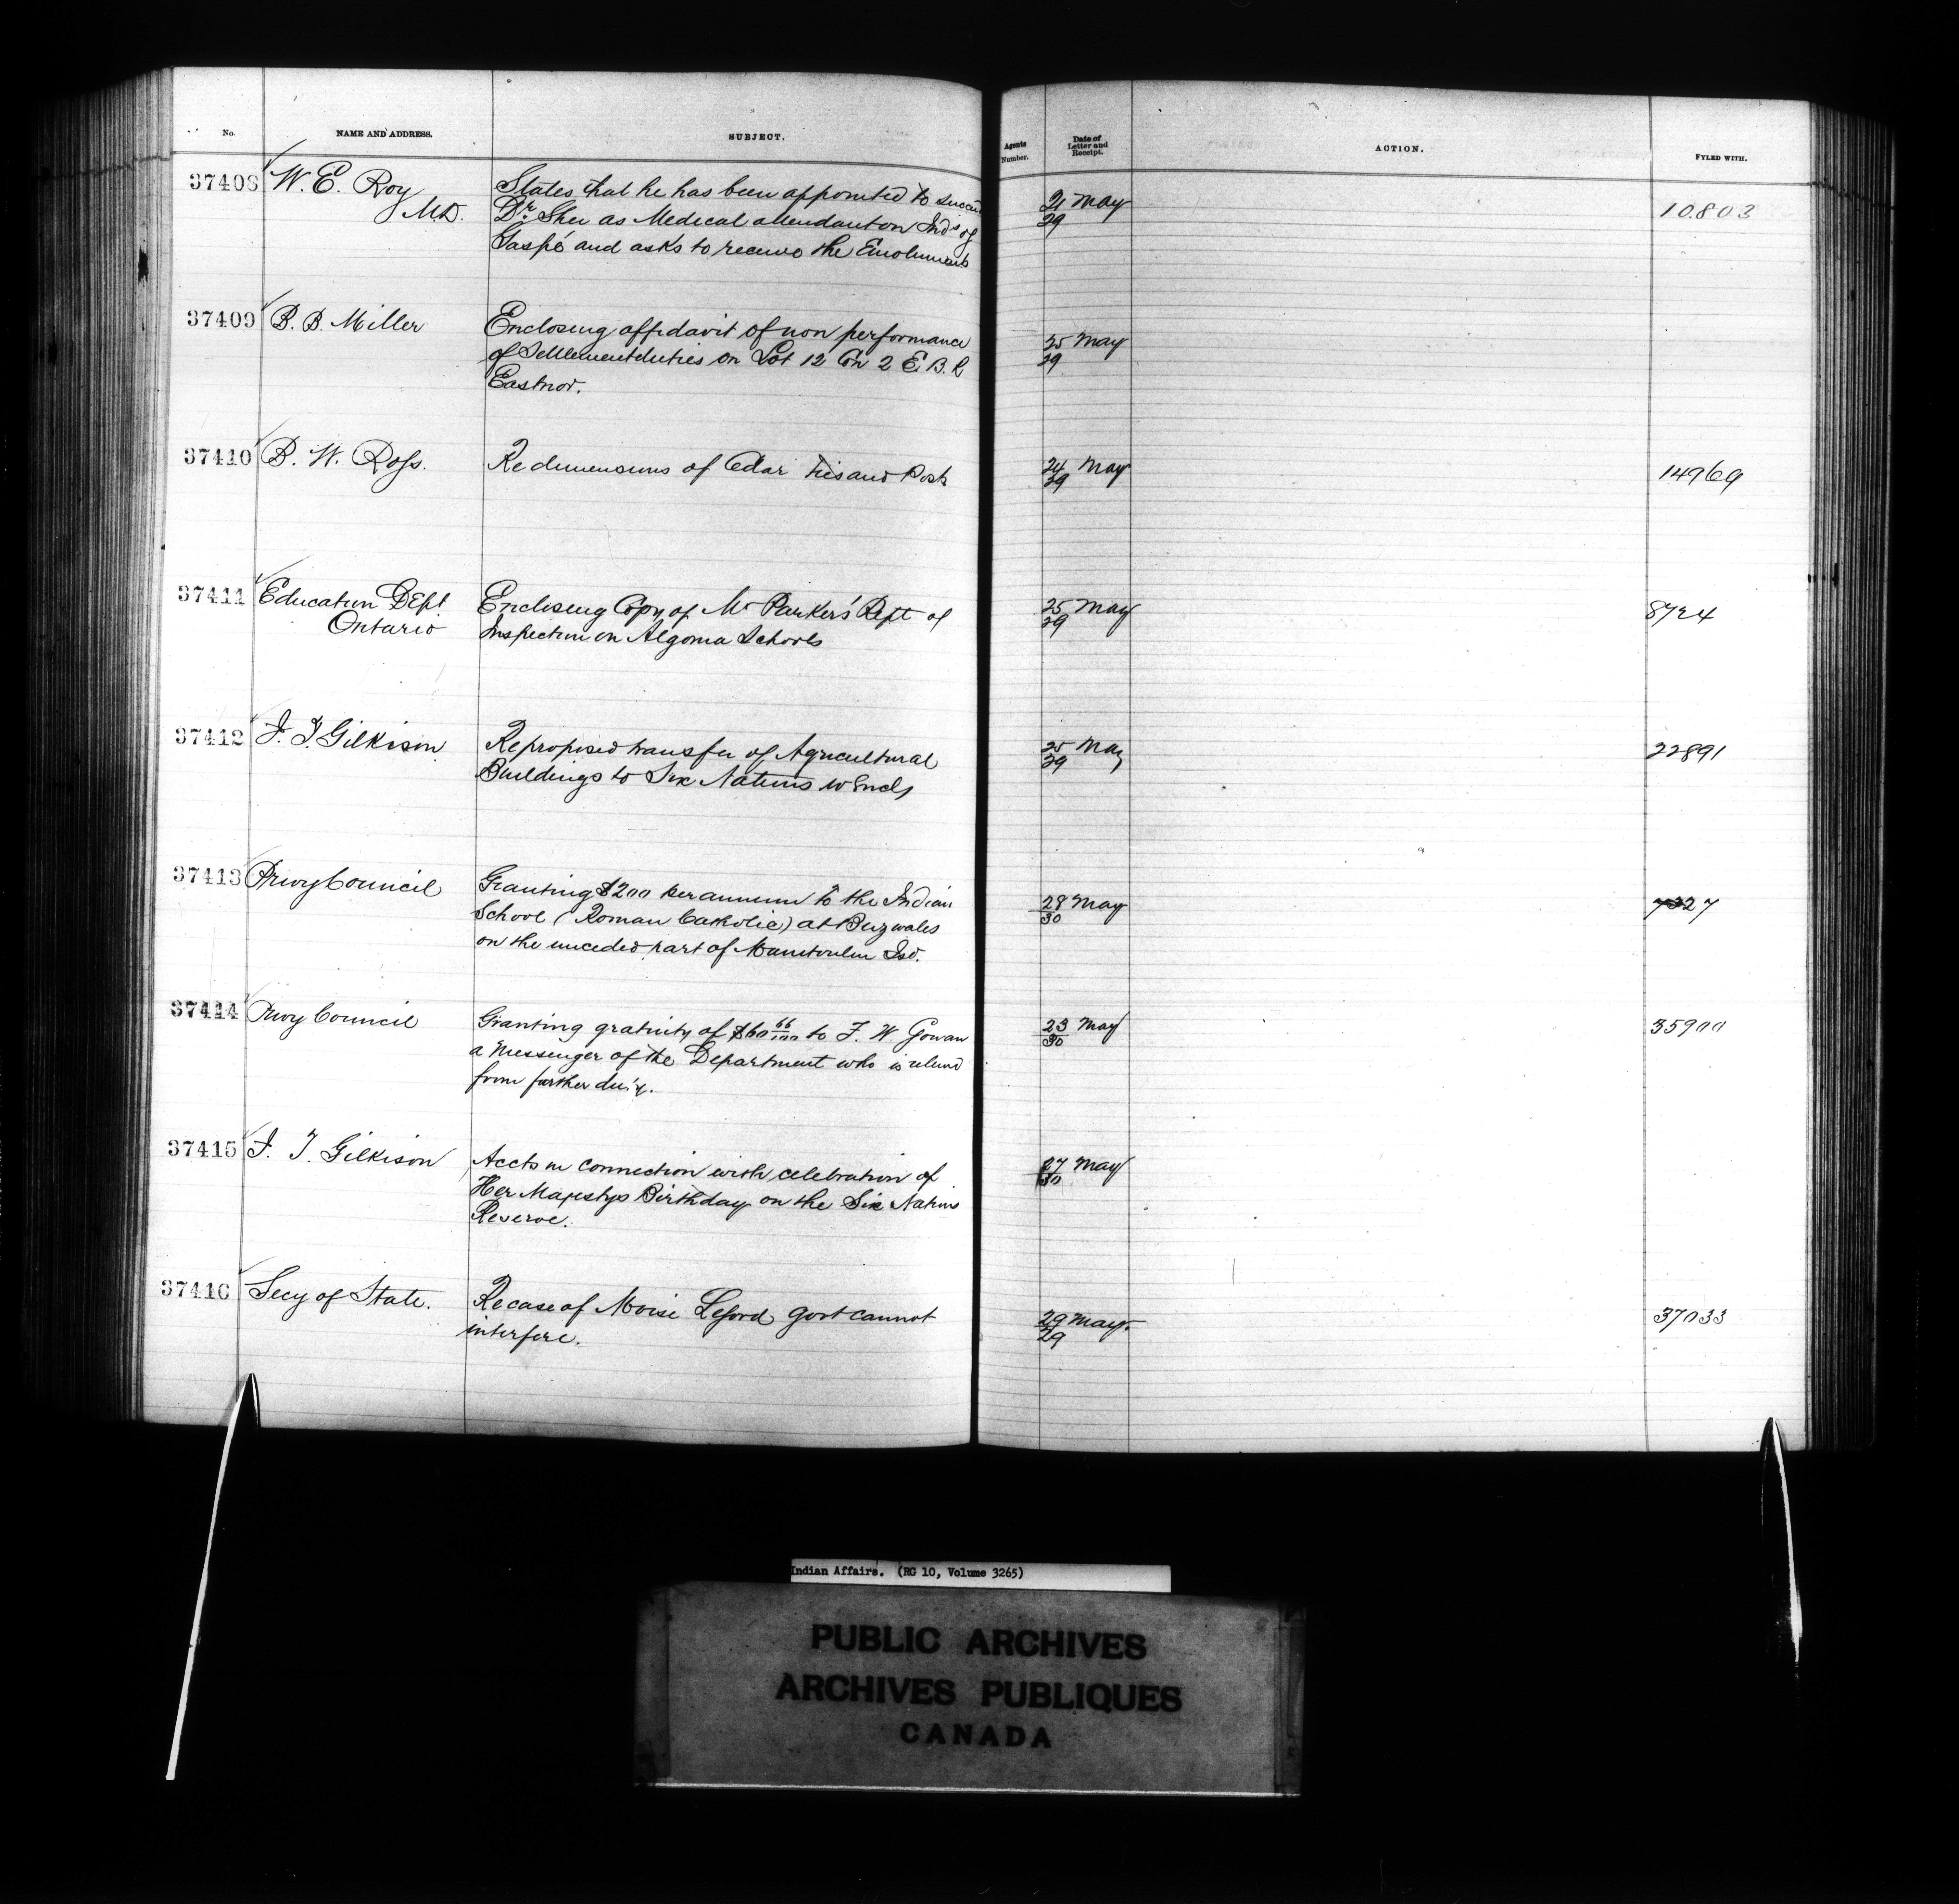 No. NAME AND ADDRESS. SUBJECT. Agents Number. Date of Letter and Receipt. ACTION. FYLED WITH.
37408 W. E. Roy States that he has been appointed to succeed 21 May 10803
M.D. Dr. Shee as Medical attendant on Inds of 29
Gaspé and asks to receive the Emoluments
37409 B. B. Miller Enclosing affidavit of non performance 25 May
of Settlement duties on Lot 12 Con 2 E. B. R 29
Eastnor.
37410 B. W. Ross. Re dimensions of Cedar Ties and Posts 24 May 14969
29
37411 Education Dept Enclosing Copy of Mr Parker's Rept of 25 May 8724
Ontario Inspection on Algoma Schools 29
37412 J. T. Gilkison Re proposed transfer of Agricultural 25 May 22891
Buildings to Six Nations w Encls 29
37413 Privy Council Granting $200 per annum to the Indian 28 May 7327
School (Roman Catholic) at Buzwales 30
on the unceded part of Manitoulin Isd.
37414 Privy Council Granting gratuity of $60 66/100 to F. W Gowan 23 May 35900
a Messenger of the Department who is relieved 30
from further duty.
37415 J. T. Gilkison Accts in connection with celebration of 27 May
Her Majestys Birthday on the Six Nations 30
Reserve.
37416 Secy of State. Re case of Moise Legord Govt cannot 29 May 37033
interfere. 29
Indian Affairs. (RG 10, Volume 3265)
PUBLIC ARCHIVES
ARCHIVES PUBLIQUES
CANADA